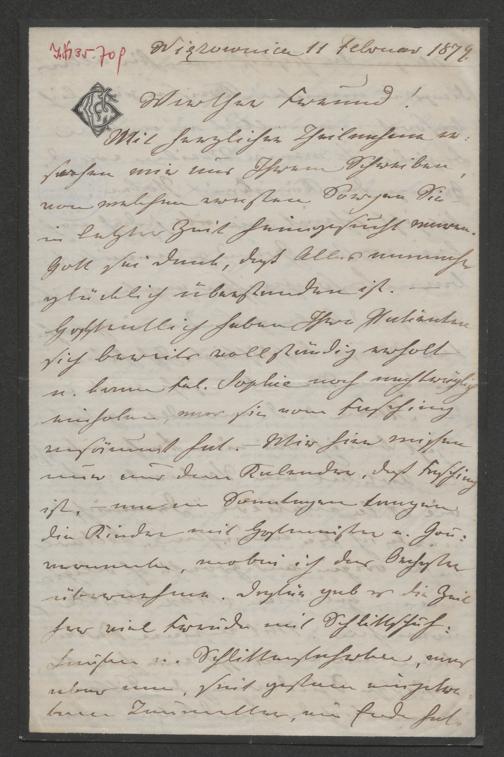 Wiązownica 11 Februar 1879.
Werther Freund!
Mit herzlicher Theilnahme er-
sehen wir aus Ihrem Schreiben,
von welchen ernsten Sorgen Sie
in letzter Zeit heimgesucht waren.
Gott sei Dank, daß Alles nunmehr
glücklich überstanden ist. —
Hoffentlich haben Ihre Patienten
sich bereits vollständig erholt
u. kann Frl. Sophie noch nachträglich
einholen, was sie vom Fasching
versäumt hat. — Wir hier wissen
nur aus dem Kalender, daß Fasching
ist, — nur an Sonntagen tanzen
die Kinder mit Hofmeister u. Gou-
vernante, wobei ich das Orchester
übernehme. Dafür gab es die Zeit
her viel Freude mit Schlittschuh-
laufen u. Schlittenfahrten, was
aber nun, seit gestern eingetre-
tenen Thauwetter, ein Ende hat.